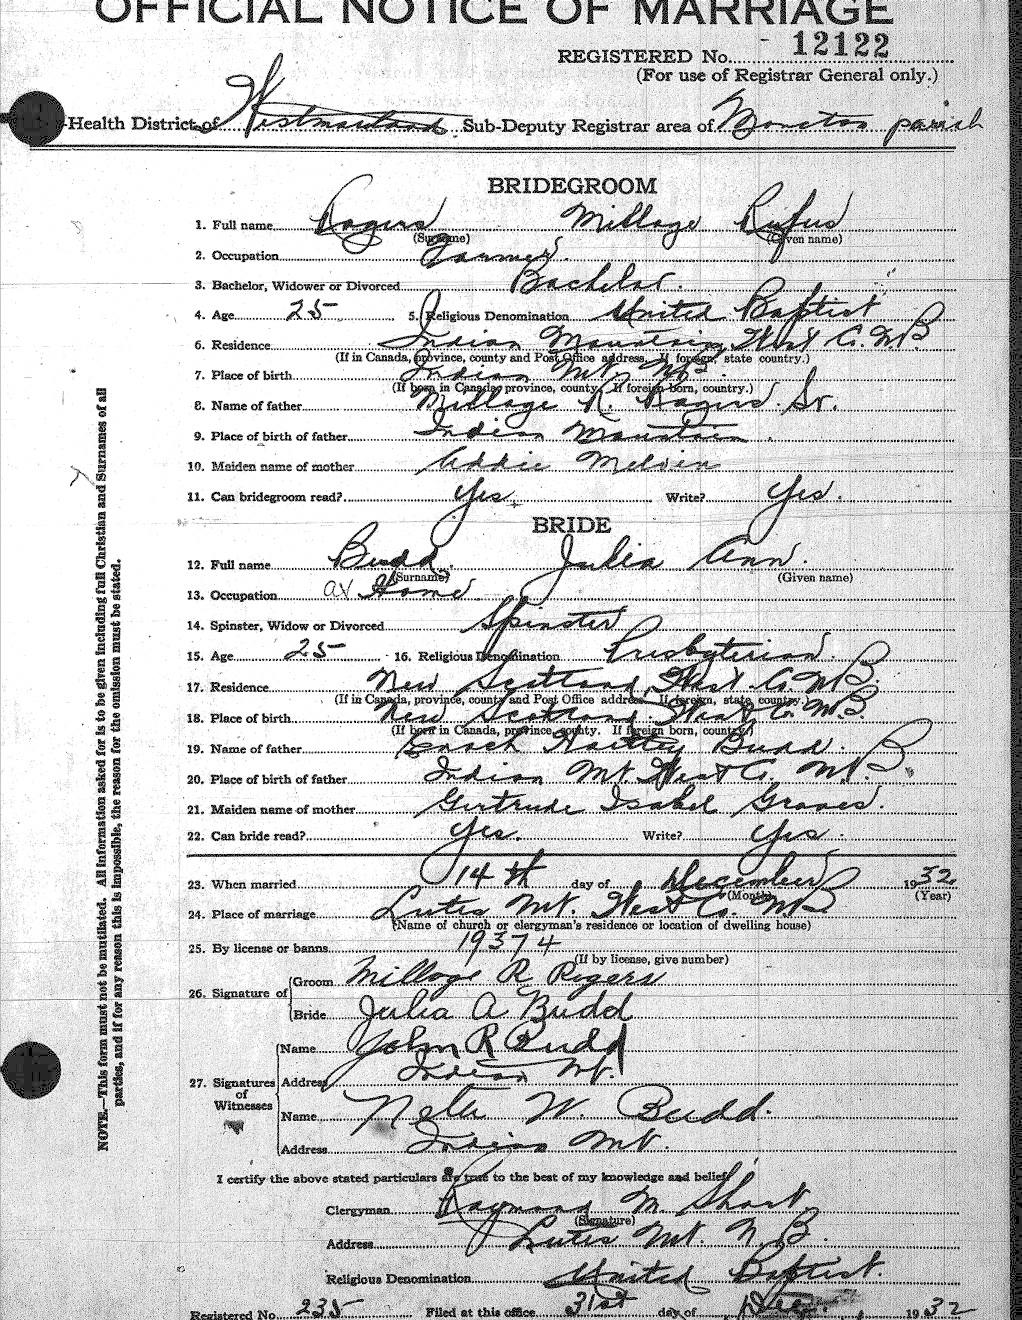 OFFICIAL NOTICE OF MARRIAGE
REGISTERED No. 12122
(For use of Registrar General only.)
-Health District of Westmorland Sub-Deputy Registrar area of Moncton parish
BRIDEGROOM
1. Full name Rogers Millage Rufus
(Surname) (Given name)
2. Occupation Farmer.
3. Bachelor, Widower or Divorced Bachelor.
4. Age 25 5. Religious Denomination United Baptist
6. Residence Indian Mountain, West Co. N.B
(If in Canada, province, county and Post Office address. If foreign, state country.)
7. Place of birth Indian Mt. N.B.
(If born in Canada, province, county. If foreign born, country.)
8. Name of father Millage R. Rogers. Sr.
9. Place of birth of father Indian Mountain.
10. Maiden name of mother Addie Melvin
11. Can bridegroom read? Yes Write? Yes.
BRIDE
12. Full name Budd, Julia Ann.
(Surname) (Given name)
13. Occupation at Home
14. Spinster, Widow or Divorced Spinster
15. Age 25 16. Religious Denomination Presbyterian.
17. Residence New Scotland, West Co. N.B.
(If in Canada, province, county and Post Office address. If foreign, state, country.)
18. Place of birth New Scotland, West Co. N.B.
(If born in Canada, province, county. If foreign born, country.)
19. Name of father Enoch Budd.
20. Place of birth of father Indian Mt. West Co. N.B.
21. Maiden name of mother Gertrude Isabel Graves.
22. Can bride read? Yes. Write? Yes.
23. When married 14th day of December 1932
(Month) (Year)
24. Place of marriage Lutes Mt. West Co. NB
(Name of church or clergyman's residence or location of dwelling house)
25. By license or banns 19374
(If by license, give number)
26. Signature of Groom Millage R Rogers
Bride Julia A Budd
27. Signatures of Witnesses Name John R Budd
Address Indian Mt.
Name Neta W. Budd.
Address Indian Mt.
I certify the above stated particulars are true to the best of my knowledge and belief
Clergyman Raymond M. Short
(Signature)
Address Lutes Mt. N.B.
Religious Denomination United Baptist.
Registered No. 235 Filed at this office 31st day of Dec. 1932
NOTE.—This form must not be mutilated. All information asked for is to be given including full Christian and Surnames of all
parties, and if for any reason this is impossible, the reason for the omission must be stated.